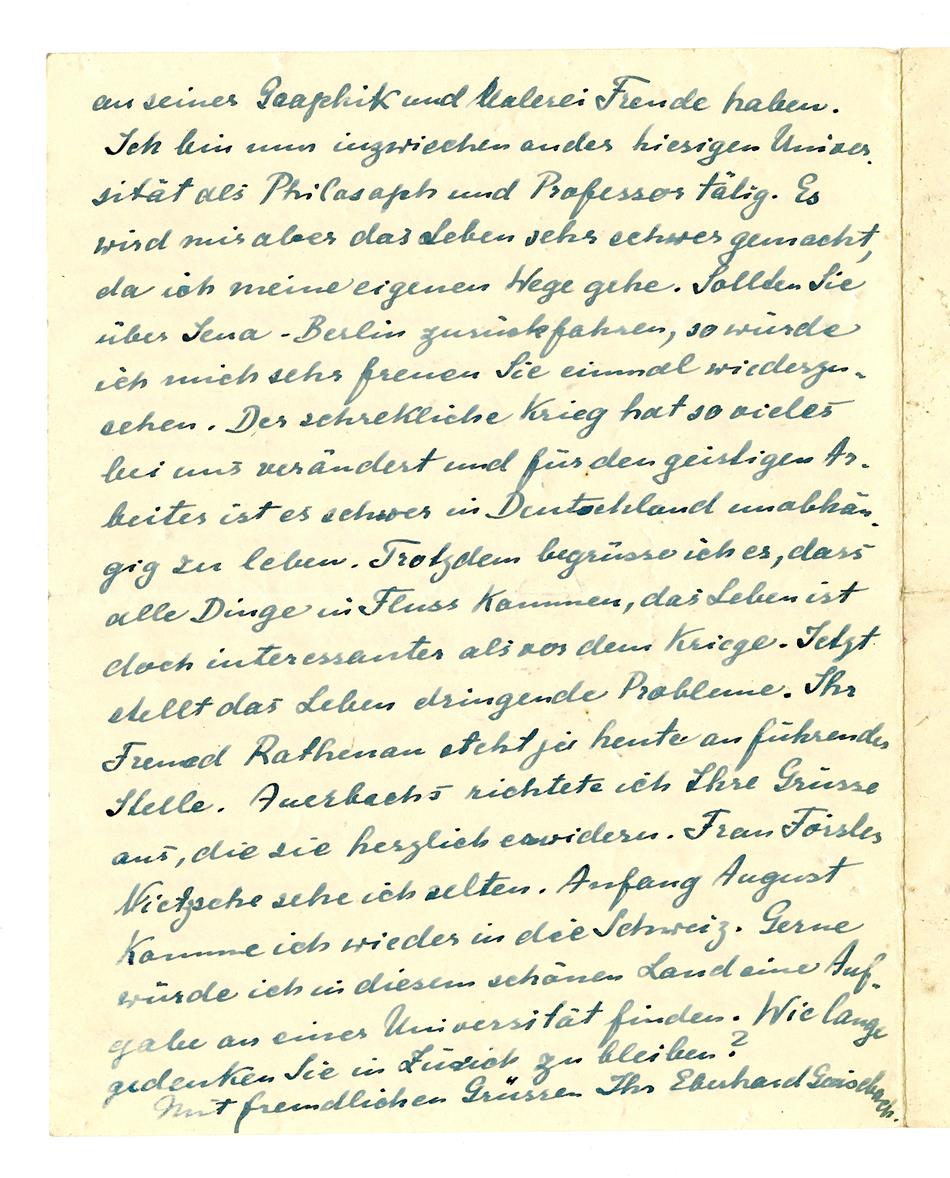 an seiner Graphik und Malerei Freude haben.
Ich bin nun inzwischen an der hiesigen Univer-
sität als Philosoph und Professor tätig. Es
wird mir aber das Leben sehr schwer gemacht,
da ich meine eigenen Wege gehe. Sollten Sie
über Jena - Berlin zurückfahren, so würde
ich mich sehr freuen Sie einmal wiederzu-
sehen. Der schrekliche Krieg hat so vieles
bei uns verändert und für den geistigen Ar-
beiter ist es schwer in Deutschland unabhän-
gig zu leben. Trotzdem begrüsse ich es, dass
alle Dinge in Fluss kommen, das Leben ist
doch interessanter als vor dem Kriege. Jetzt
stellt das Leben dringende Probleme. Ihr
Freund Rathenau steht ja heute an führender
Stelle. Auerbachs richtete ich Ihre Grüsse
aus, die sie herzlich erwidern. Frau Förster
Nietzsche sehe ich selten. Anfang August
komme ich wieder in die Schweiz. Gerne
würde ich in diesem schönen Land eine Auf-
gabe an einer Universität finden. Wie lange
gedenken Sie in Zürich zu bleiben?
Mit freundlichen Grüssen Ihr Eberhard Grisebach.